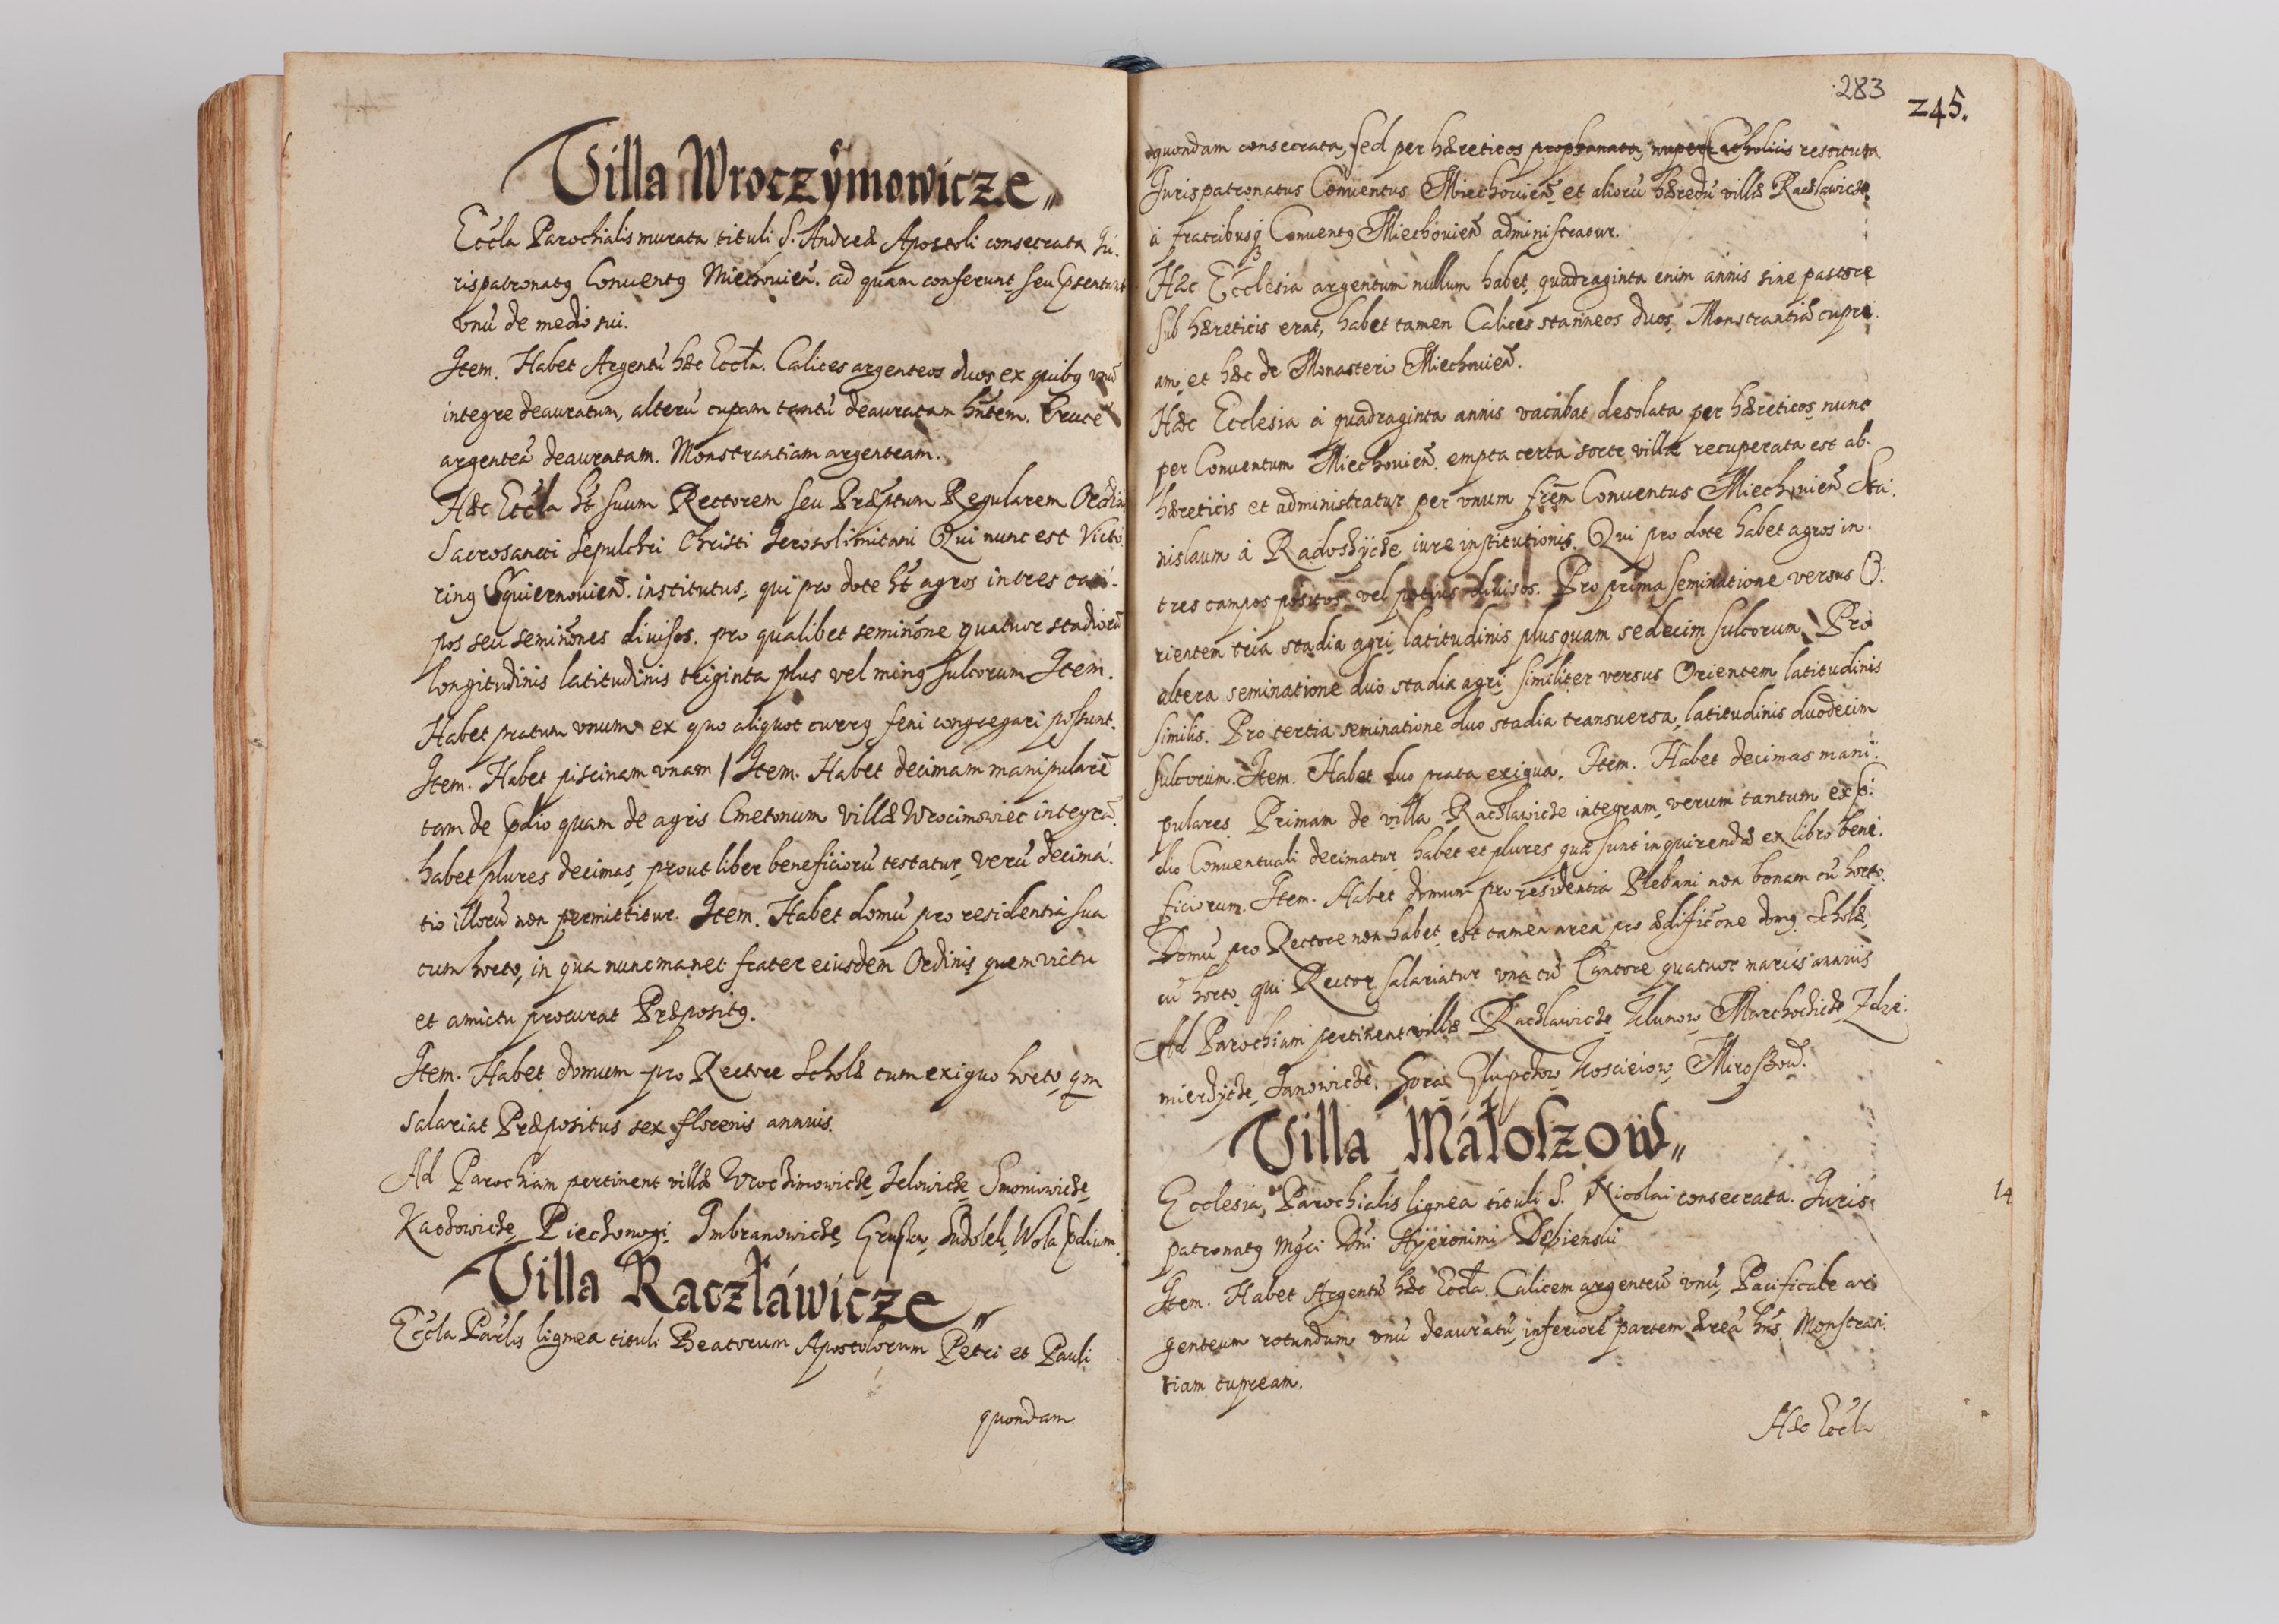 Villa Wroczÿmowicze„
Eccła Parochialis murata tituli S. Andreæ Apostoli consecrata Ju-
rispatronatꝰ Conventꝰ Miechovień. ad quam conferunt seu psentant
vnū de medio sui.
Item. Habet Argentū hæc Eccła. Calices argenteos duos ex quibꝰ vnū
integre deauratum, alterū cupam tantū deauratam hñtem. Crucē
argenteā deauratam. Monstrantiam argenteam.
Hæc Eccła ht̃ suum Rectorem seu Præptum Regularem Ordin
Sacrosancti Sepulchri Christi Jerosolimitani Qui nunc est Victo
rinꝰ Squiernovień. institutus, qui pro dote ht̃ agros in tres cam-
pos seu seminōnes divisos. pro qualibet seminōne quatuor stadiorū
longitudinis latitudinis triginta plus vel minꝰ sulcorum Item.
Habet pratum vnum ex quo aliquot currꝰ feni congregari possunt.
Item. Habet piscinam vnam / Item. Habet decimam manipularē
tam de pdio quam de agris Cmetonum villæ Wrocimowiec integrā.
habet plures decimas, prout liber beneficiorū testatur, verū decima-
tio illorū non permittitur. Item. Habet domū pro residentia sua
cum horto, in qua nunc manet frater eiusdem Ordinis quem victu
et amictu procurat Præpositꝰ.
Item. Habet domum pro Rectore Scholæ cum exiguo horto, qm
salariat Præpositus sex florenis annuis.
Ad Parochiam pertinent villæ Wroczimowicze, Jelowicze, Smoniowicze,
Kaczowicze, Piechonogi, Imbranowicze, Gruska, Sudolek, Wola pdium.
Villa Raczławicze„
Eccła Parłis lignea tituli Beatorum Apostolorum Petri et Pauli
quondam
283
245.
quondam consecrata, sed per hæreticos prophanata, nuper Catholicis restituta
Jurispatronatus Conventus Miechovień. et aliorū hæredū villæ Raclawicze,
à fratribusq Conventꝰ Miechovień administratur.
Hæc Ecclesia argentum nullum habet, quadraginta enim annis sine pastore
sub hæreticis erat, habet tamen Calices stanneos duos, Monstrantiā cupre-
am, et hæc de Monasterio Miechovień.
Hæc Ecclesia à quadraginta annis vacabat desolata per hæreticos, nunc
per Conventum Miechovień. empta certa sorte villæ recuperata est ab-
hæreticis et administratur per vnum frēm Conventus Miechovień Sta-
nislaum à Radoszÿcze iure institutionis. Qui pro dote habet agros in-
tres campos positos vel potius divisos. Pro prima seminatione versus O-
rientem tria stadia agri, latitudinis plusquam sedecim sulcorum, Pro
altera seminatione duo stadia agri similiter versus Orientem latitudinis
similis. Pro tertia seminatione duo stadia transversa, latitudinis duodecim
sulcorum. Item. Habet duo prata exigua. Item. Habet decimas mani-
pulares. Primam de villa Raczlawicze integram, verum tantum ex p-
dio Conventuali decimatur, habet et plures quæ sunt inquirendæ ex libro bene-
ficiorum. Item. Habet domum pro residentia Plebani non bonam cū horto.
Domū pro Rectore non habet, est tamen area pro ædificōne domꝰ Scholæ,
cū horto, qui Rector salariatur vna cū Cantore quatuor marcis annuis
Ad Parochiam pertinent villæ Raczlawicze, Klunow, Marchocicze, Zdze-
mierzÿcze, Janowicze, Gora, Głupczow, Koscieiow, Miroszow.
Villa Máłoszów„
Ecclesia Parochialis lignea tituli S. Nicolai consecrata. Juris-
14
patronatꝰ Mg̃ci Dńi Hÿeronimi Dębienskii
Item. Habet Argentū hæc Eccła. Calicem argenteū vnū, Pacificale ar-
genteum rotundum vnū deauratū, inferiorē partem æreā hñs. Monstran-
tiam cupream.
Hæc Eccła